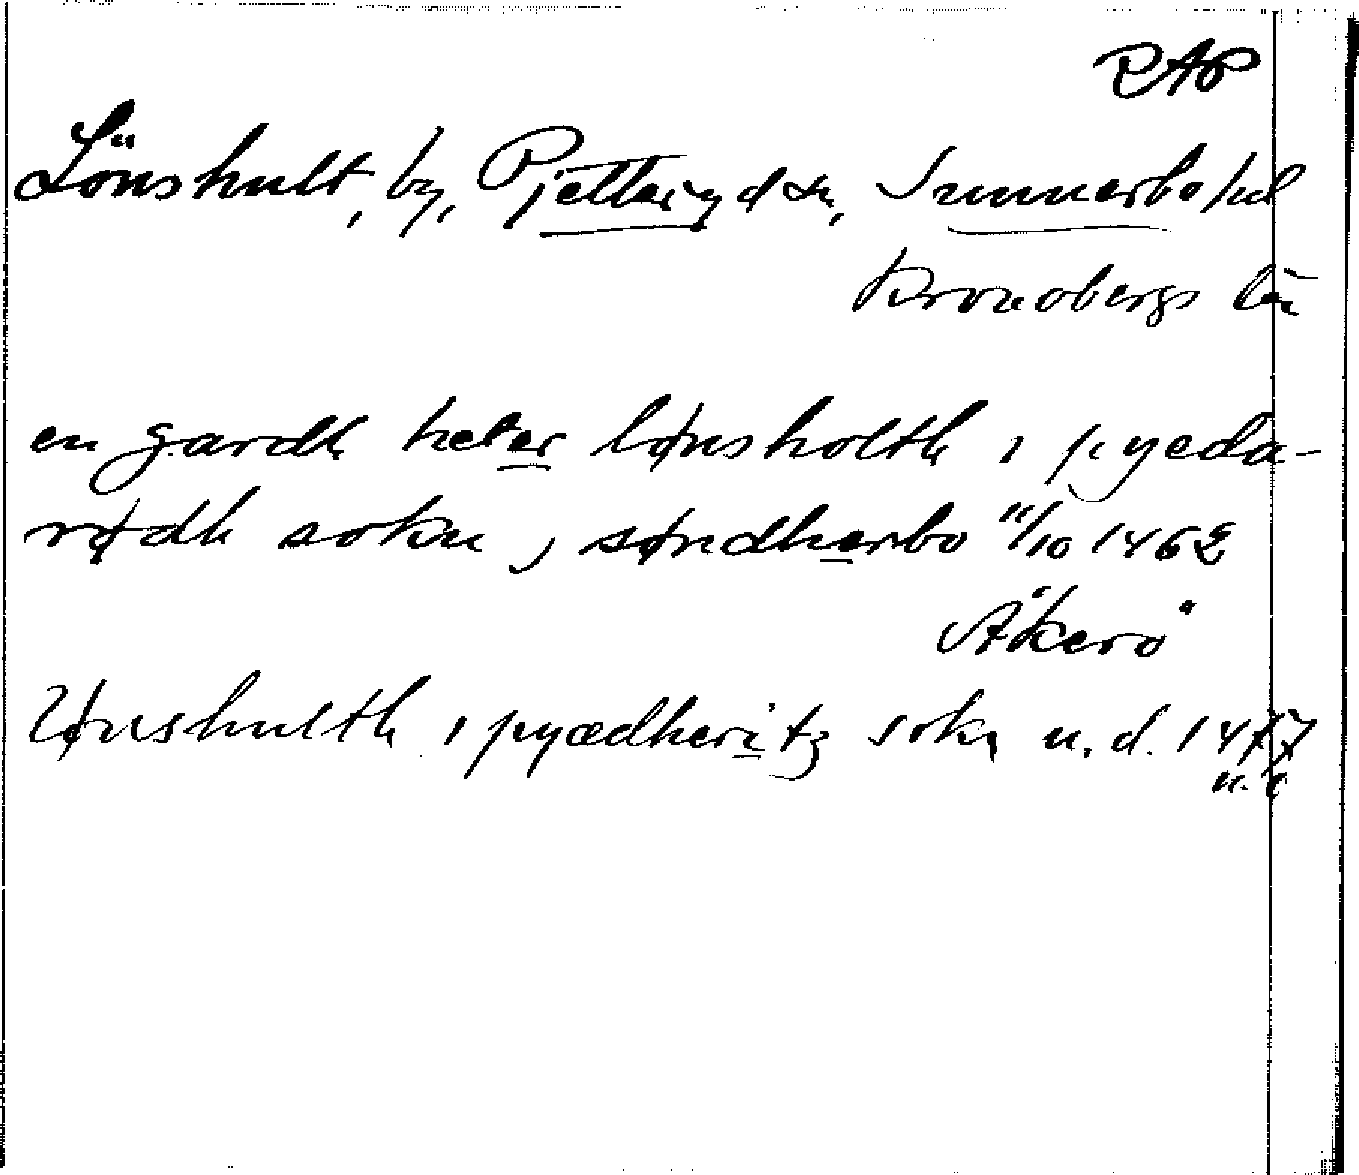 RAP
Lönshult, by, Pjetteryd sn, Sunnerbo hd
Kronobergs län
en gardh heter lønsholth i pyeda-
rødh sokn, søndherbo 11/10 1462
Åkerö
Lønshulth i pyædheritz sokn u.d. 1477